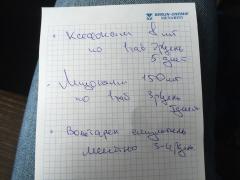 BERLIN-CHEMIE
MENARINI
Ксефокам 8 мг
по 1 таб 2р/день
5 дней
Мидокалм 150 мг
по 1 таб 3р/день
Вольтарен эмульгель
местно 3-4р/день